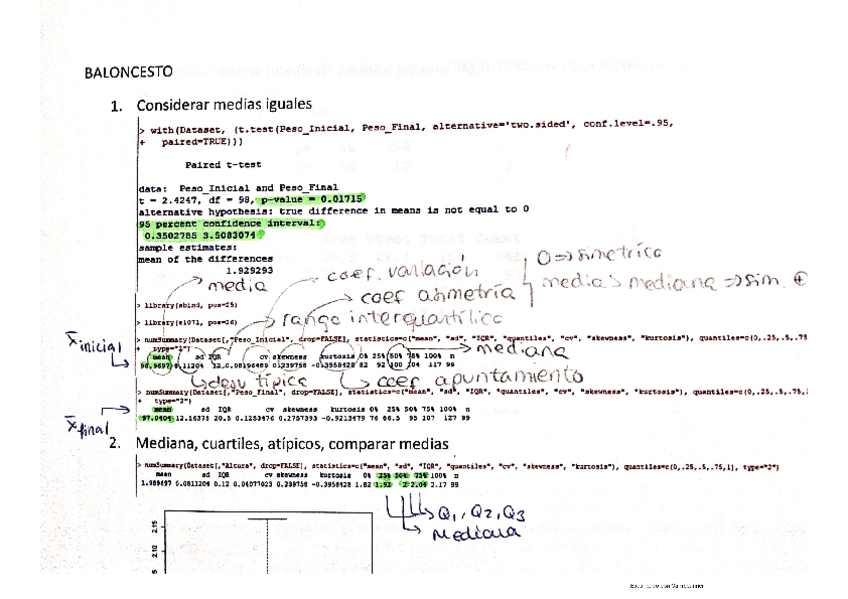 BALONCESTO
1. Considerar medias iguales
> with(Dataset, (t.test(Peso_Inicial, Peso_Final, alternative='two.sided', conf.level=.95,
+ paired=TRUE)))
Paired t-test
data: Peso_Inicial and Peso_Final
t = 2.4247, df = 98, p-value = 0.01715
alternative hypothesis: true difference in means is not equal to 0
95 percent confidence interval:
0.3502785 3.5083074
sample estimates:
mean of the differences
1.929293
media
coef. variación
coef asimetría
0 => simetrico
media > mediana => sim. +
> library(abind, pos=25)
> library(e1071, pos=26)
rango interquartílico
x̄ inicial
> numSummary(Dataset[,"Peso_Inicial", drop=FALSE], statistics=c("mean", "sd", "IQR", "quantiles", "cv", "skewness", "kurtosis"), quantiles=c(0,.25,.5,.75
+ type="2")
mediana
mean sd IQR cv skewness kurtosis 0% 25% 50% 75% 100% n
98.9697 82 92 100 104 117 99
desv típica
coef apuntamiento
> numSummary(Dataset[,"Peso_Final", drop=FALSE], statistics=c("mean", "sd", "IQR", "quantiles", "cv", "skewness", "kurtosis"), quantiles=c(0,.25,.5,.75,
+ type="2")
mean sd IQR cv skewness kurtosis 0% 25% 50% 75% 100% n
97.0404 12.16373 20.5 0.1253476 0.2757393 -0.9213479 76 86.5 95 107 127 99
x̄ final
2. Mediana, cuartiles, atípicos, comparar medias
> numSummary(Dataset[,"Altura", drop=FALSE], statistics=c("mean", "sd", "IQR", "quantiles", "cv", "skewness", "kurtosis"), quantiles=c(0,.25,.5,.75,1), type="2")
mean sd IQR cv skewness kurtosis 0% 25% 50% 75% 100% n
1.989697 0.0811204 0.12 0.04077023 0.239758 -0.3958428 1.82 1.92 2 2.04 2.17 99
Q1, Q2, Q3
Mediana
2.15
2.10